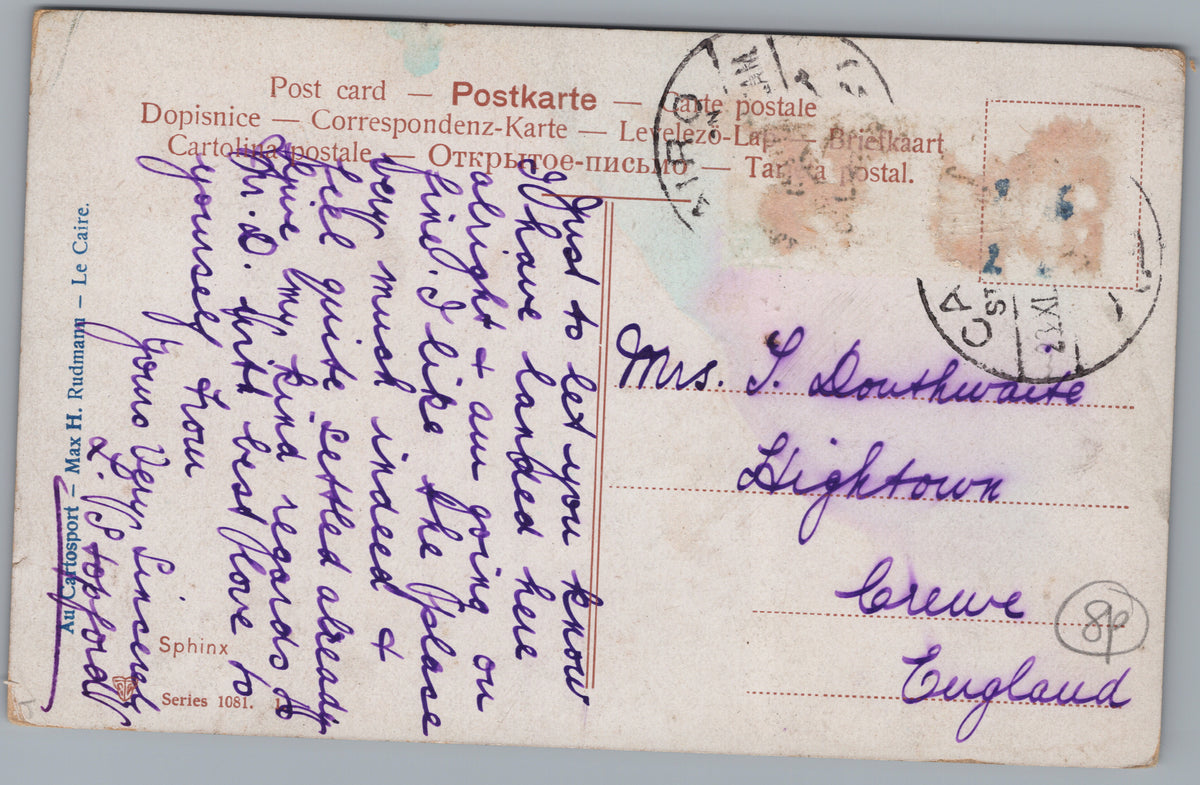 Post card — Postkarte — Carte postale
Dopisnice — Correspondenz-Karte — Levelező-Lap — Briefkaart
Cartolina postale — Открытое-письмо — Tarjeta postal.
CAIRO
CA
Just to let you know
I have landed here
alright + am going on
fine. I like the place
very much indeed +
feel quite settled already
Give my kind regards to
Mr. D. With best love to
yourself From
Yours Very Sincerely
L. Stopford
Mrs. S. Douthwaite
Hightown
Crewe
England
8p
Au Cartosport — Max H. Rudmann — Le Caire.
Sphinx
Series 1081.